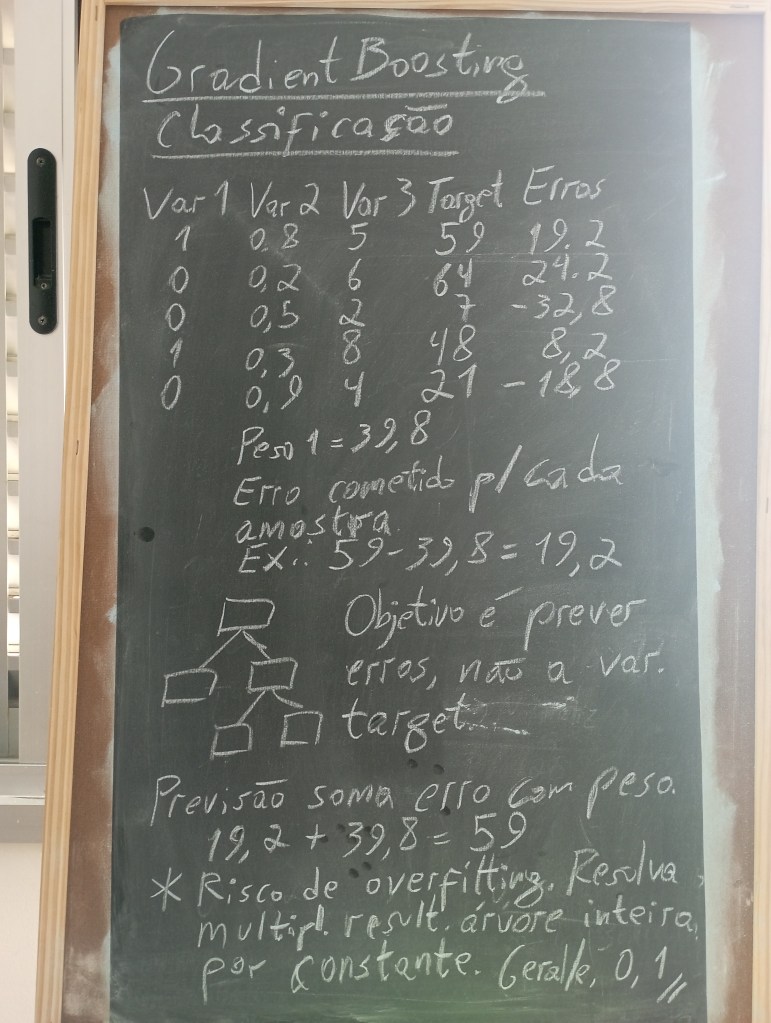 Gradient Boosting
Classificação
Var 1 Var 2 Var 3 Target Erros
1 0,8 5 59 19.2
0 0,2 6 64 24.2
0 0,5 2 7 -32,8
1 0,3 8 48 8,2
0 0,9 4 21 -18,8
Peso 1 = 39,8
Erro cometido p/ cada
amostra
Ex.: 59-39,8 = 19,2
Objetivo é prever
erros, não a var.
target.
Previsão soma erro com peso.
19,2 + 39,8 = 59
* Risco de overfitting. Resolva,
multipl. result. árvore inteira,
por constante. Geral/e, 0,1//